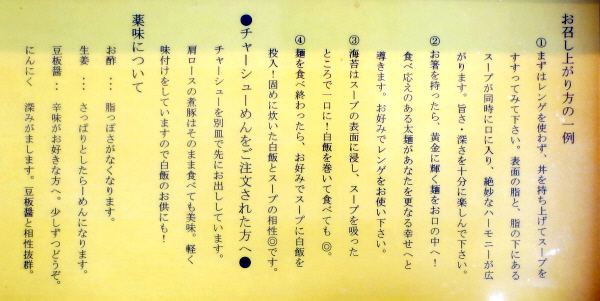 お召し上がり方の一例
①まずはレンゲを使わず、丼を持ち上げてスープを
すすってみて下さい。表面の脂と、脂の下にある
スープが同時に口に入り、絶妙なハーモニーが広
がります。旨さ・深さを十分に楽しんで下さい。
②お箸を持ったら、黄金に輝く麺をお口の中へ!
食べ応えのある太麺があなたを更なる幸せへと
導きます。お好みでレンゲをお使い下さい。
③海苔はスープの表面に浸し、スープを吸った
ところで一口に!白飯を巻いて食べても◎。
④麺を食べ終わったら、お好みでスープに白飯を
投入!固めに炊いた白飯とスープの相性◎です。
●チャーシューめんをご注文された方へ●
チャーシューを別皿で先にお出ししています。
肩ロースの煮豚はそのまま食べても美味。軽く
味付けをしていますので白飯のお供にも!
薬味について
お酢 … 脂っぽさがなくなります。
生姜 … さっぱりとしたらーめんになります。
豆板醤 … 辛味がお好きな方へ。少しずつどうぞ。
にんにく 深みがまします。豆板醤と相性抜群。